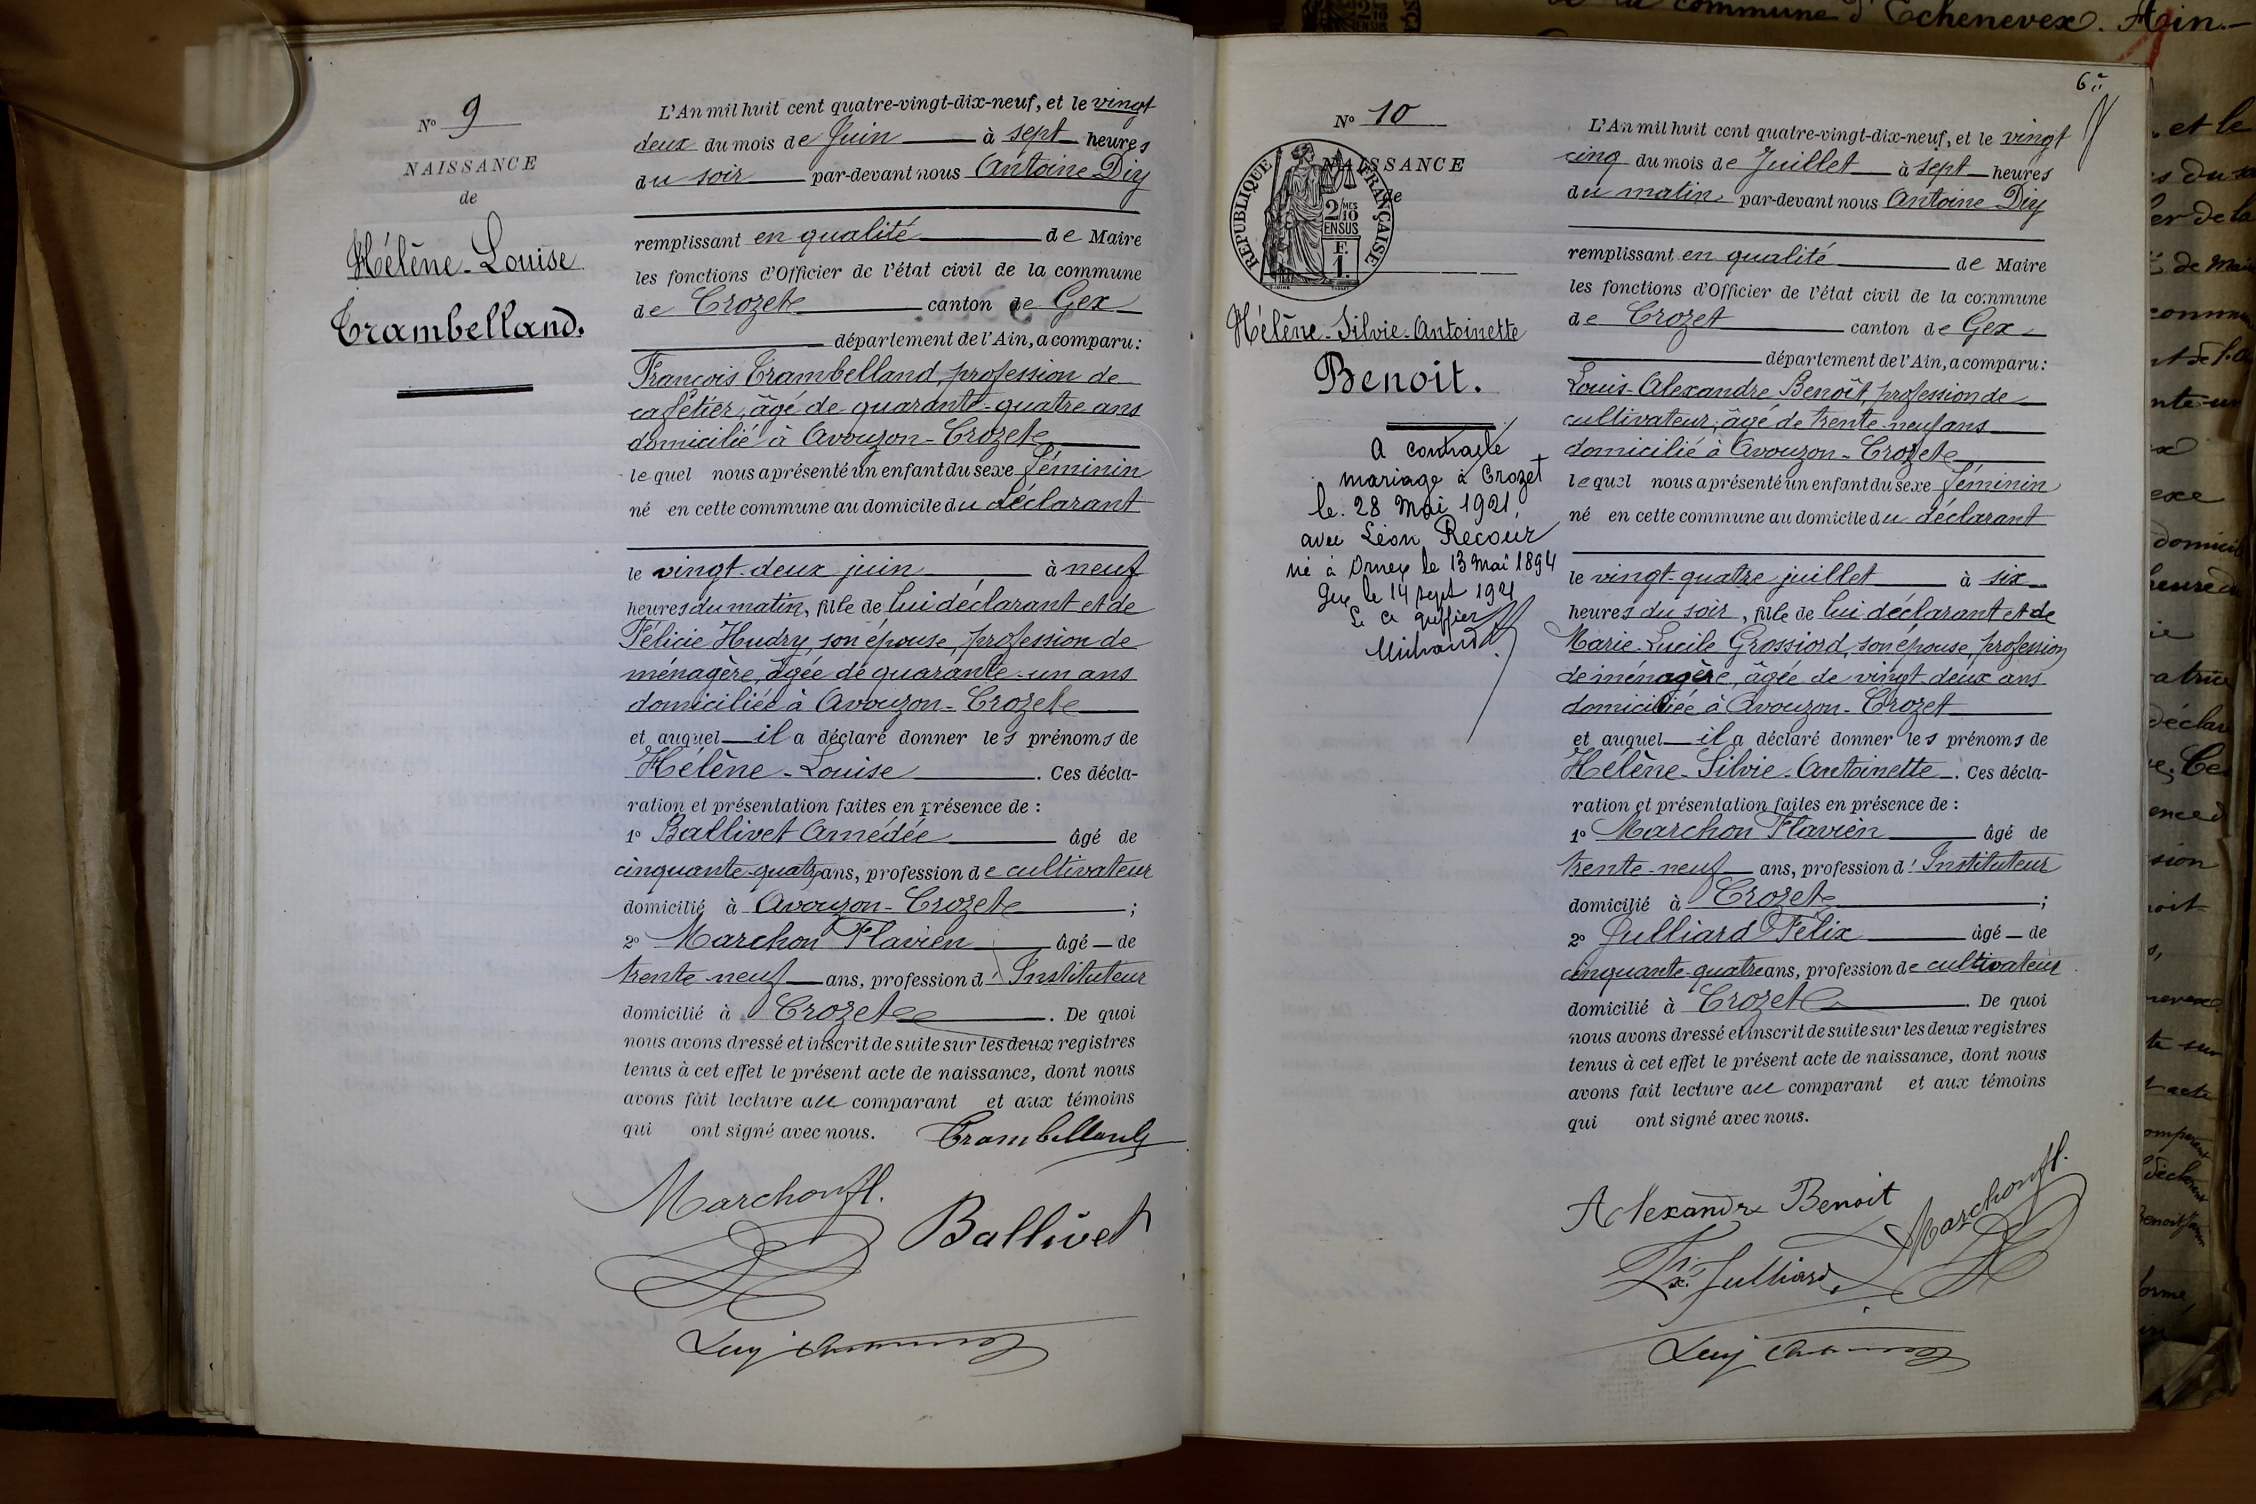 de la commune d'Echenevex. Ain.
Nº 9
NAISSANCE
de
Hélène-Louise
Trambelland.
L'An mil huit cent quatre-vingt-dix-neuf, et le vingt
deux du mois de Juin à sept heures
du soir par-devant nous Antoine Diy
remplissant en qualité de Maire
les fonctions d'Officier de l'état civil de la commune
de Crozet canton de Gex
département de l'Ain, a comparu:
François Trambelland, profession de
cafetier, âgé de quarante-quatre ans
domicilié à Avouzon-Crozet
lequel nous a présenté un enfant du sexe féminin
né en cette commune au domicile du déclarant
le vingt-deux juin à neuf
heures du matin, fille de lui déclarant et de
Félicie Hudry, son épouse, profession de
ménagère, âgée de quarante-un ans
domiciliée à Avouzon-Crozet
et auquel il a déclaré donner les prénoms de
Hélène-Louise. Ces décla-
ration et présentation faites en présence de :
1º Ballivet Amédée âgé de
cinquante-quatre ans, profession de cultivateur
domicilié à Avouzon-Crozet ;
2º Marchon Flavien âgé de
trente neuf ans, profession d'Instituteur
domicilié à Crozet. De quoi
nous avons dressé et inscrit de suite sur les deux registres
tenus à cet effet le présent acte de naissance, dont nous
avons fait lecture au comparant et aux témoins
qui ont signé avec nous. Trambelland
Marchon fl.
Ballivet
6
Nº 10
NAISSANCE
de
REPUBLIQUE FRANÇAISE
2/10
MES
EN SUS
F.
1.
Hélène-Silvie-Antoinette
Benoit.
A contracté
mariage à Crozet
le 28 Mai 1921,
avec Léon Recour
né à Ornex le 13 mai 1894
Gex le 14 sept 1921
Le Cs greffier
L'An mil huit cent quatre-vingt-dix-neuf, et le vingt
cinq du mois de Juillet à sept heures
du matin, par-devant nous Antoine Diy
remplissant en qualité de Maire
les fonctions d'Officier de l'état civil de la commune
de Crozet canton de Gex
département de l'Ain, a comparu:
Louis-Alexandre Benoît, profession de
cultivateur, âgé de trente-neuf ans
domicilié à Avouzon-Crozet
lequel nous a présenté un enfant du sexe féminin
né en cette commune au domicile du déclarant
le vingt-quatre juillet à six
heures du soir, fille de lui déclarant et de
Marie-Lucile Grossiord, son épouse, profession
de ménagère, âgée de vingt-deux ans
domiciliée à Avouzon-Crozet
et auquel il a déclaré donner les prénoms de
Hélène-Silvie-Antoinette. Ces décla-
ration et présentation faites en présence de :
1º Marchon Flavien âgé de
trente-neuf ans, profession d'Instituteur
domicilié à Crozet ;
2º Julliard Félix âgé de
cinquante-quatre ans, profession de cultivateur
domicilié à Crozet. De quoi
nous avons dressé et inscrit de suite sur les deux registres
tenus à cet effet le présent acte de naissance, dont nous
avons fait lecture au comparant et aux témoins
qui ont signé avec nous.
Alexandre Benoit
Marchon fl.
Fx. Julliard